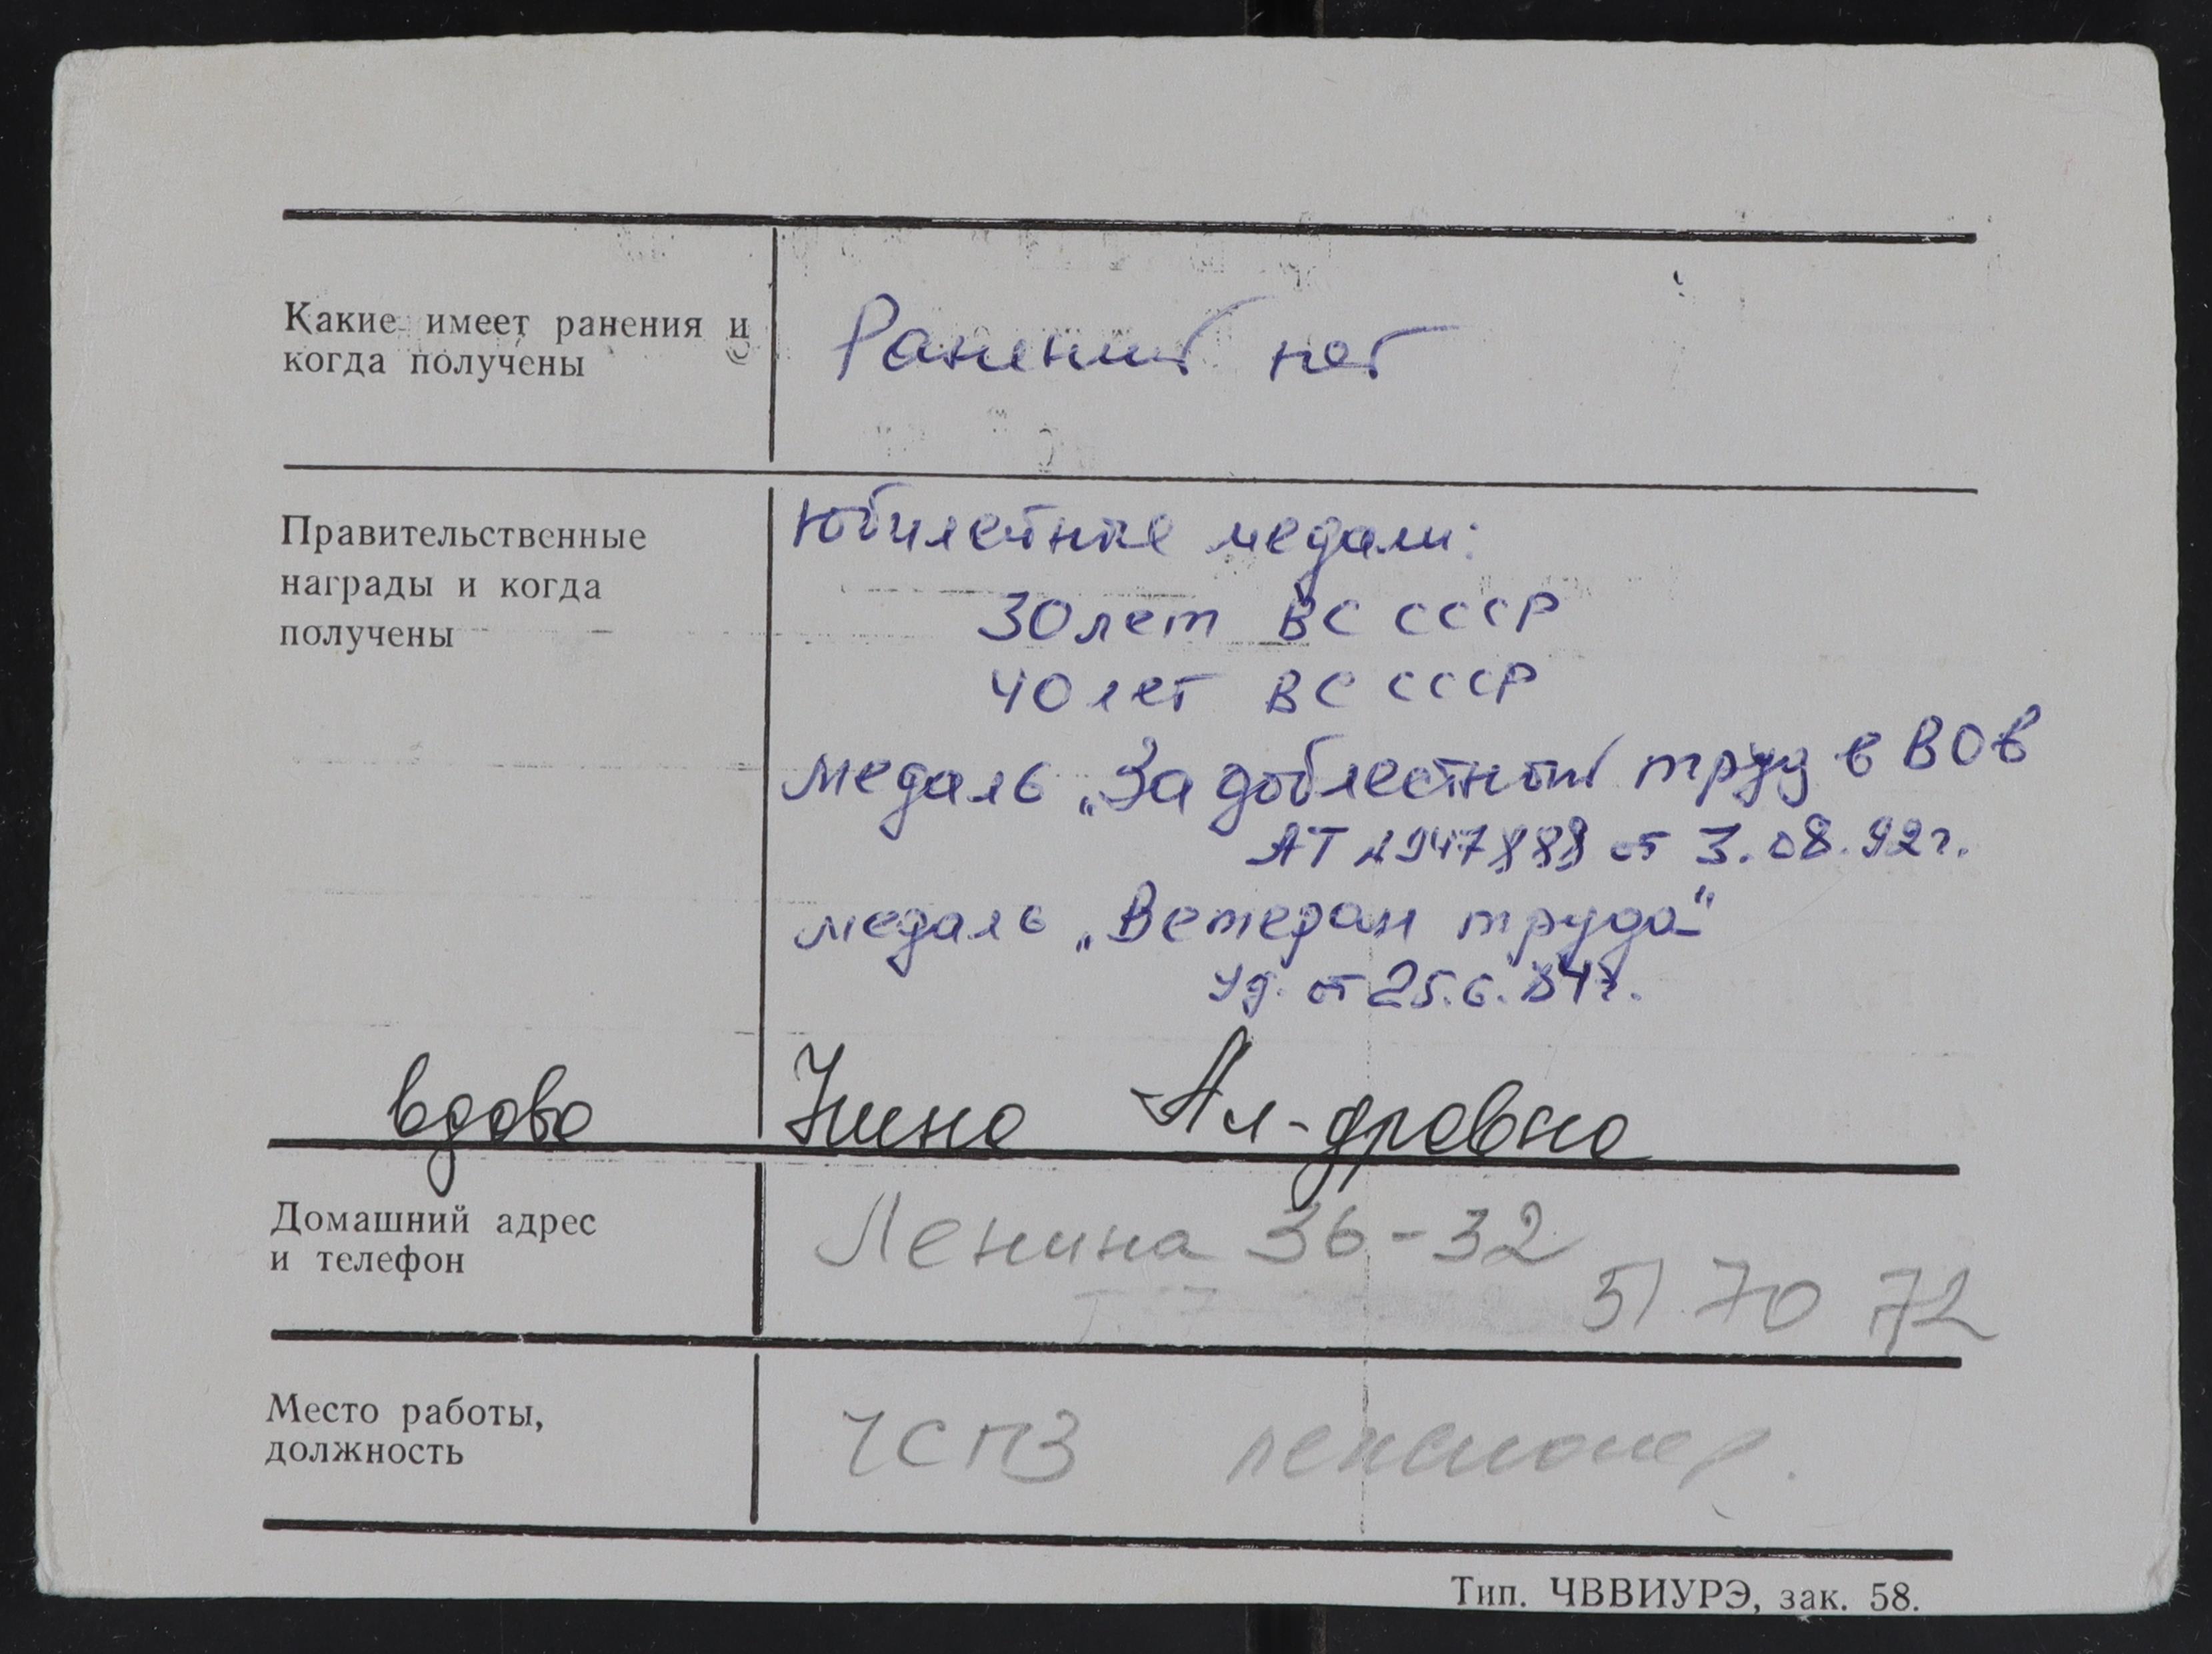 Какие имеет ранения и
когда получены
Ранений нет
Правительственные
награды и когда
получены
Юбилейные медали:
30 лет ВС СССР
40 лет ВС СССР
медаль „За доблестный труд в ВОв
АТ №947888 от 3.08.92г.
медаль „Ветеран труда"
уд. от 25.6.84г.
вдова Нина Ал-дровна
Домашний адрес
и телефон
Ленина 36-32
51 70 72
Место работы,
должность
ЧСПЗ пенсионер.
Тип. ЧВВИУРЭ, зак. 58.